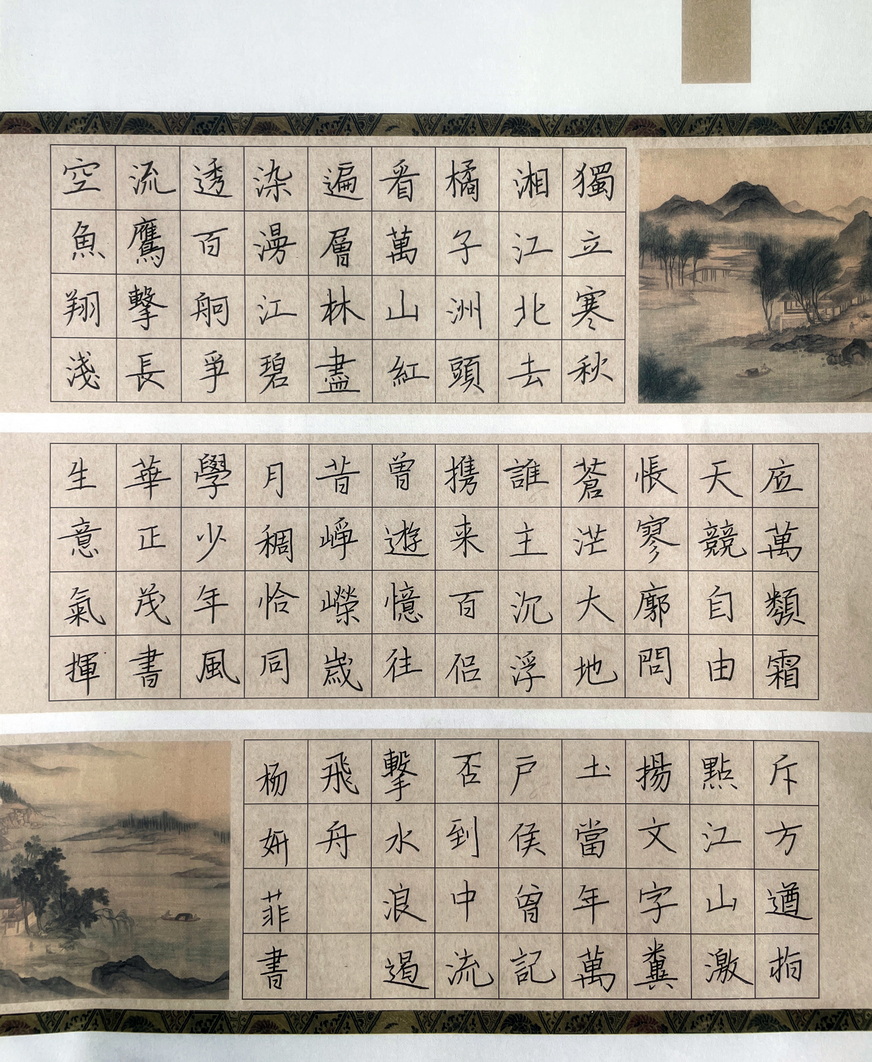 獨立寒秋
湘江北去
橘子洲頭
看萬山紅
遍層林盡
染漫江碧
透百舸爭
流鷹擊長
空魚翔淺
底萬類霜
天競自由
悵寥廓問
蒼茫大地
誰主沉浮
携来百侣
曾遊憶往
昔崢嶸歲
月稠恰同
學少年風
華正茂書
生意氣揮
斥方遒指
點江山激
揚文字糞
土當年萬
户侯曾記
否到中流
擊水浪遏
飛舟
杨妍菲書